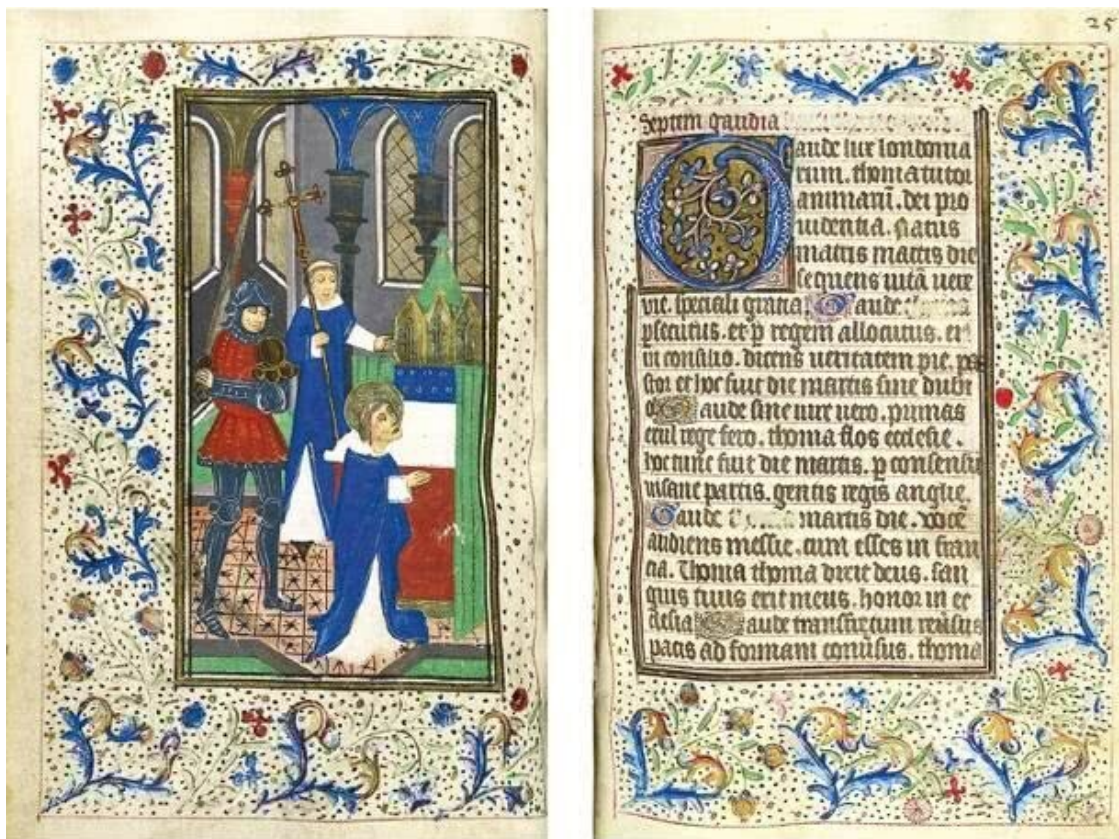 25
Septem gaudia
Gaude lux londonia
rum. thoma tutor
animarū. dei pro
uidentia. Natus
matris martis die
sequens uitā uere
vie. speciali gratia. Gaude
psecutus. et p regem allocutus. et
in consilio. dicens ueritatem pie. pa
stor et hoc fuit die martis sine dubi
o Gaude sine uire uero. primas
coul rege fero. thoma flos ecclesie.
hoc tunc fuit die martis. p consensū
insane partis. gentis regis anglie.
Gaude martis die. uocē
audiens messie. cum esses in fran
cia. Thoma thoma dixit deus. san
guis tuus erit meus. honor in ec
clesia Gaude transfretum reūsus
pacis ad formam conūsus. thoma